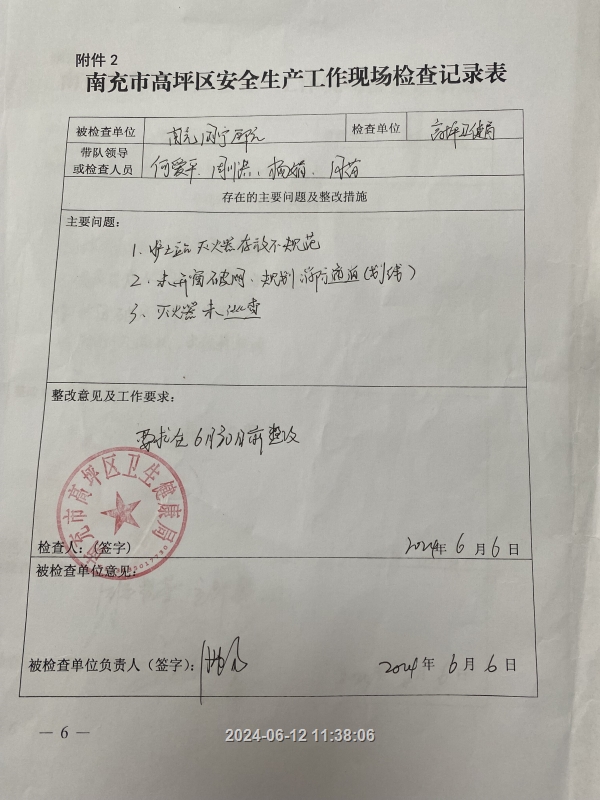 附件 2
南充市高坪区安全生产工作现场检查记录表
被检查单位 检查单位 高坪卫健局
带队领导
或检查人员
存在的主要问题及整改措施
主要问题:
灭火器存放不规范
2. 未开窗破网、规划消防通道(划线)
3、灭火器未巡查
整改意见及工作要求:
要求在6月30日前整改
南充市高坪区卫生健康局
检查人:(签字) 2024年 6 月 6 日
被检查单位意见:
被检查单位负责人(签字): 2024 年 6 月 6 日
— 6 —
2024-06-12 11:38:06